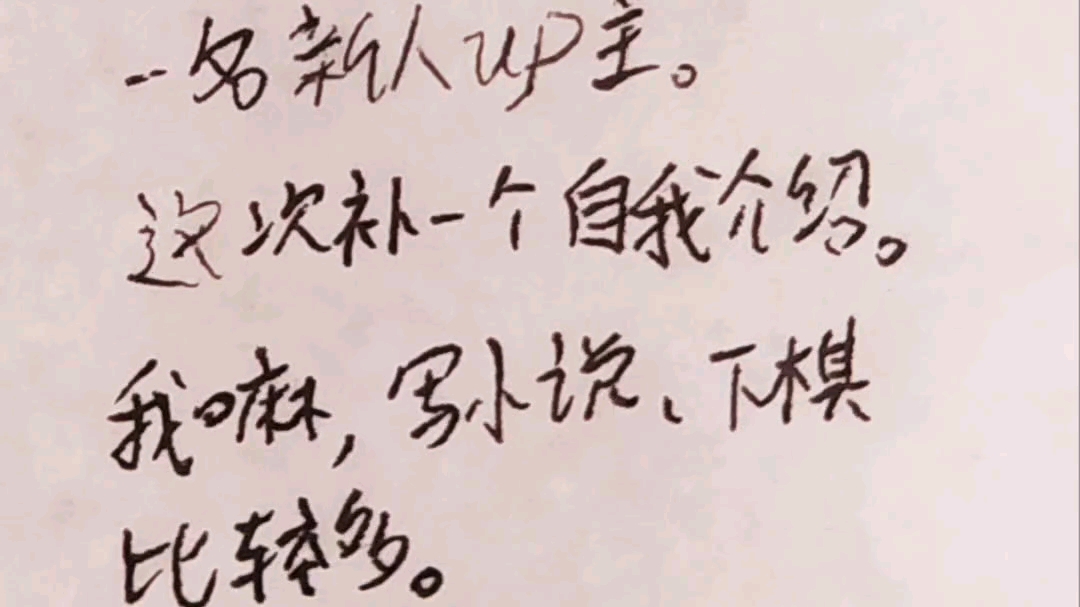 一名新人up主。
这次补一个自我介绍。
我嘛，写小说、下棋
比较多。